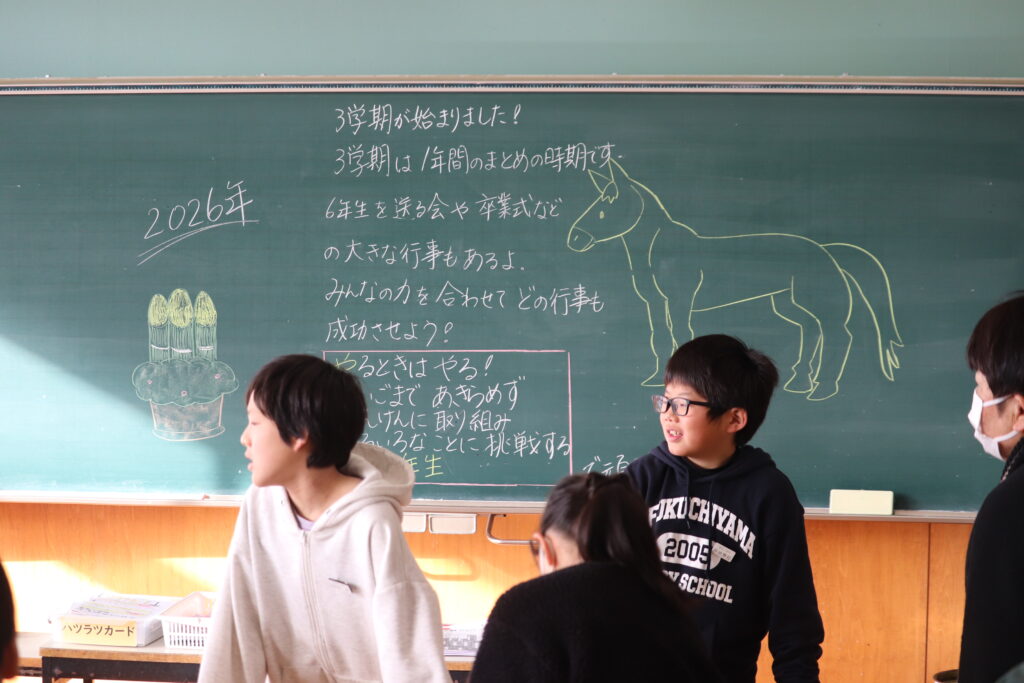 3学期が始まりました!
3学期は1年間のまとめの時期です。
6年生を送る会や卒業式など
の大きな行事もあるよ。
みんなの力を合わせてどの行事も
成功させよう!
2026年
やるときはやる!
ごまで あきらめず
んけんに 取り組み
ろいろなことに 挑戦する
年生
FUKUCHIYAMA
2005
SCHOOL
ハツラツカード